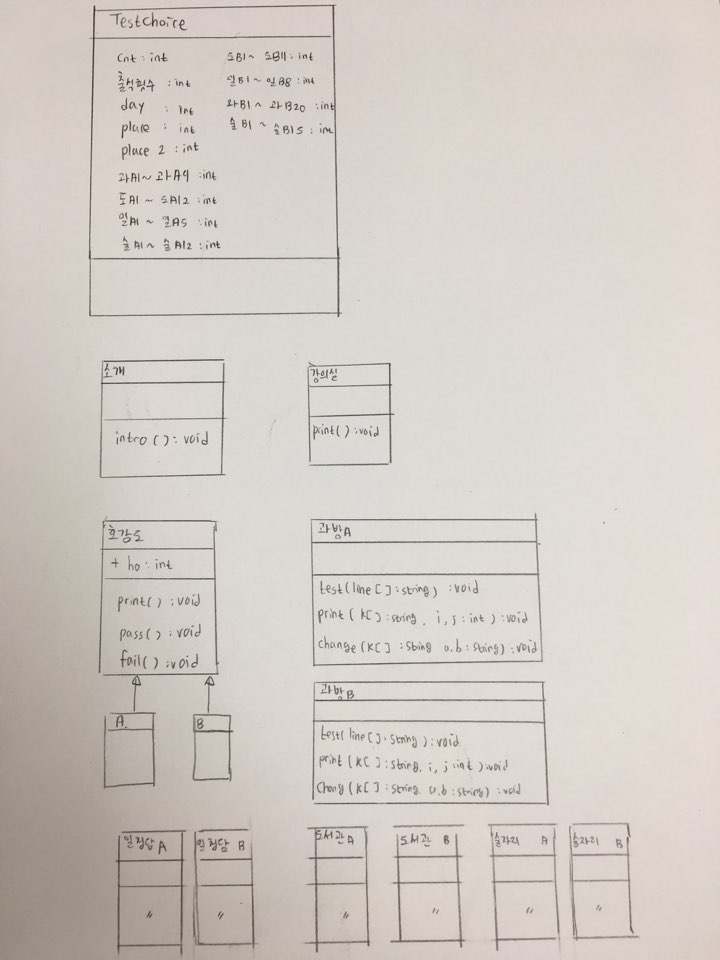 TestChoice
Cnt : int
출석횟수 : int
day : int
place : int
place 2 : int
과A1~ 과A9 :int
도A1 ~ 도A12 :int
일A1 ~ 일A5 :int
술A1 ~ 술A12 :int
도B1~ 도B11 : int
일B1 ~ 일B8 :int
과B1 ~ 과B20 :int
술B1 ~ 술B15 : int
소개
intro ( ) : void
강의실
print( ) : void
호감도
+ ho : int
print() : void
pass() : void
fail() : void
A
B
과방A
test(line [ ] : string) : void
print ( k[ ] : string, i, j : int ) : void
change (k[ ] : string a.b : string) : void
과방B
test( line[ ] : string ) : void
print (k[ ] : string, i, j : int ) : void
Chang (k[ ] : string, a.b : string) : void
일정담 A
〃
일정담 B
〃
도서관 A
〃
도서관 B
〃
술자리 A
〃
술자리 B
〃